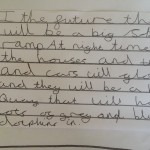 I the future the
will be a big Sch
ramp At nighe time
the houses and th
and cars will glo
and they will be a b
Quay that will ha
and bl
dolphins in